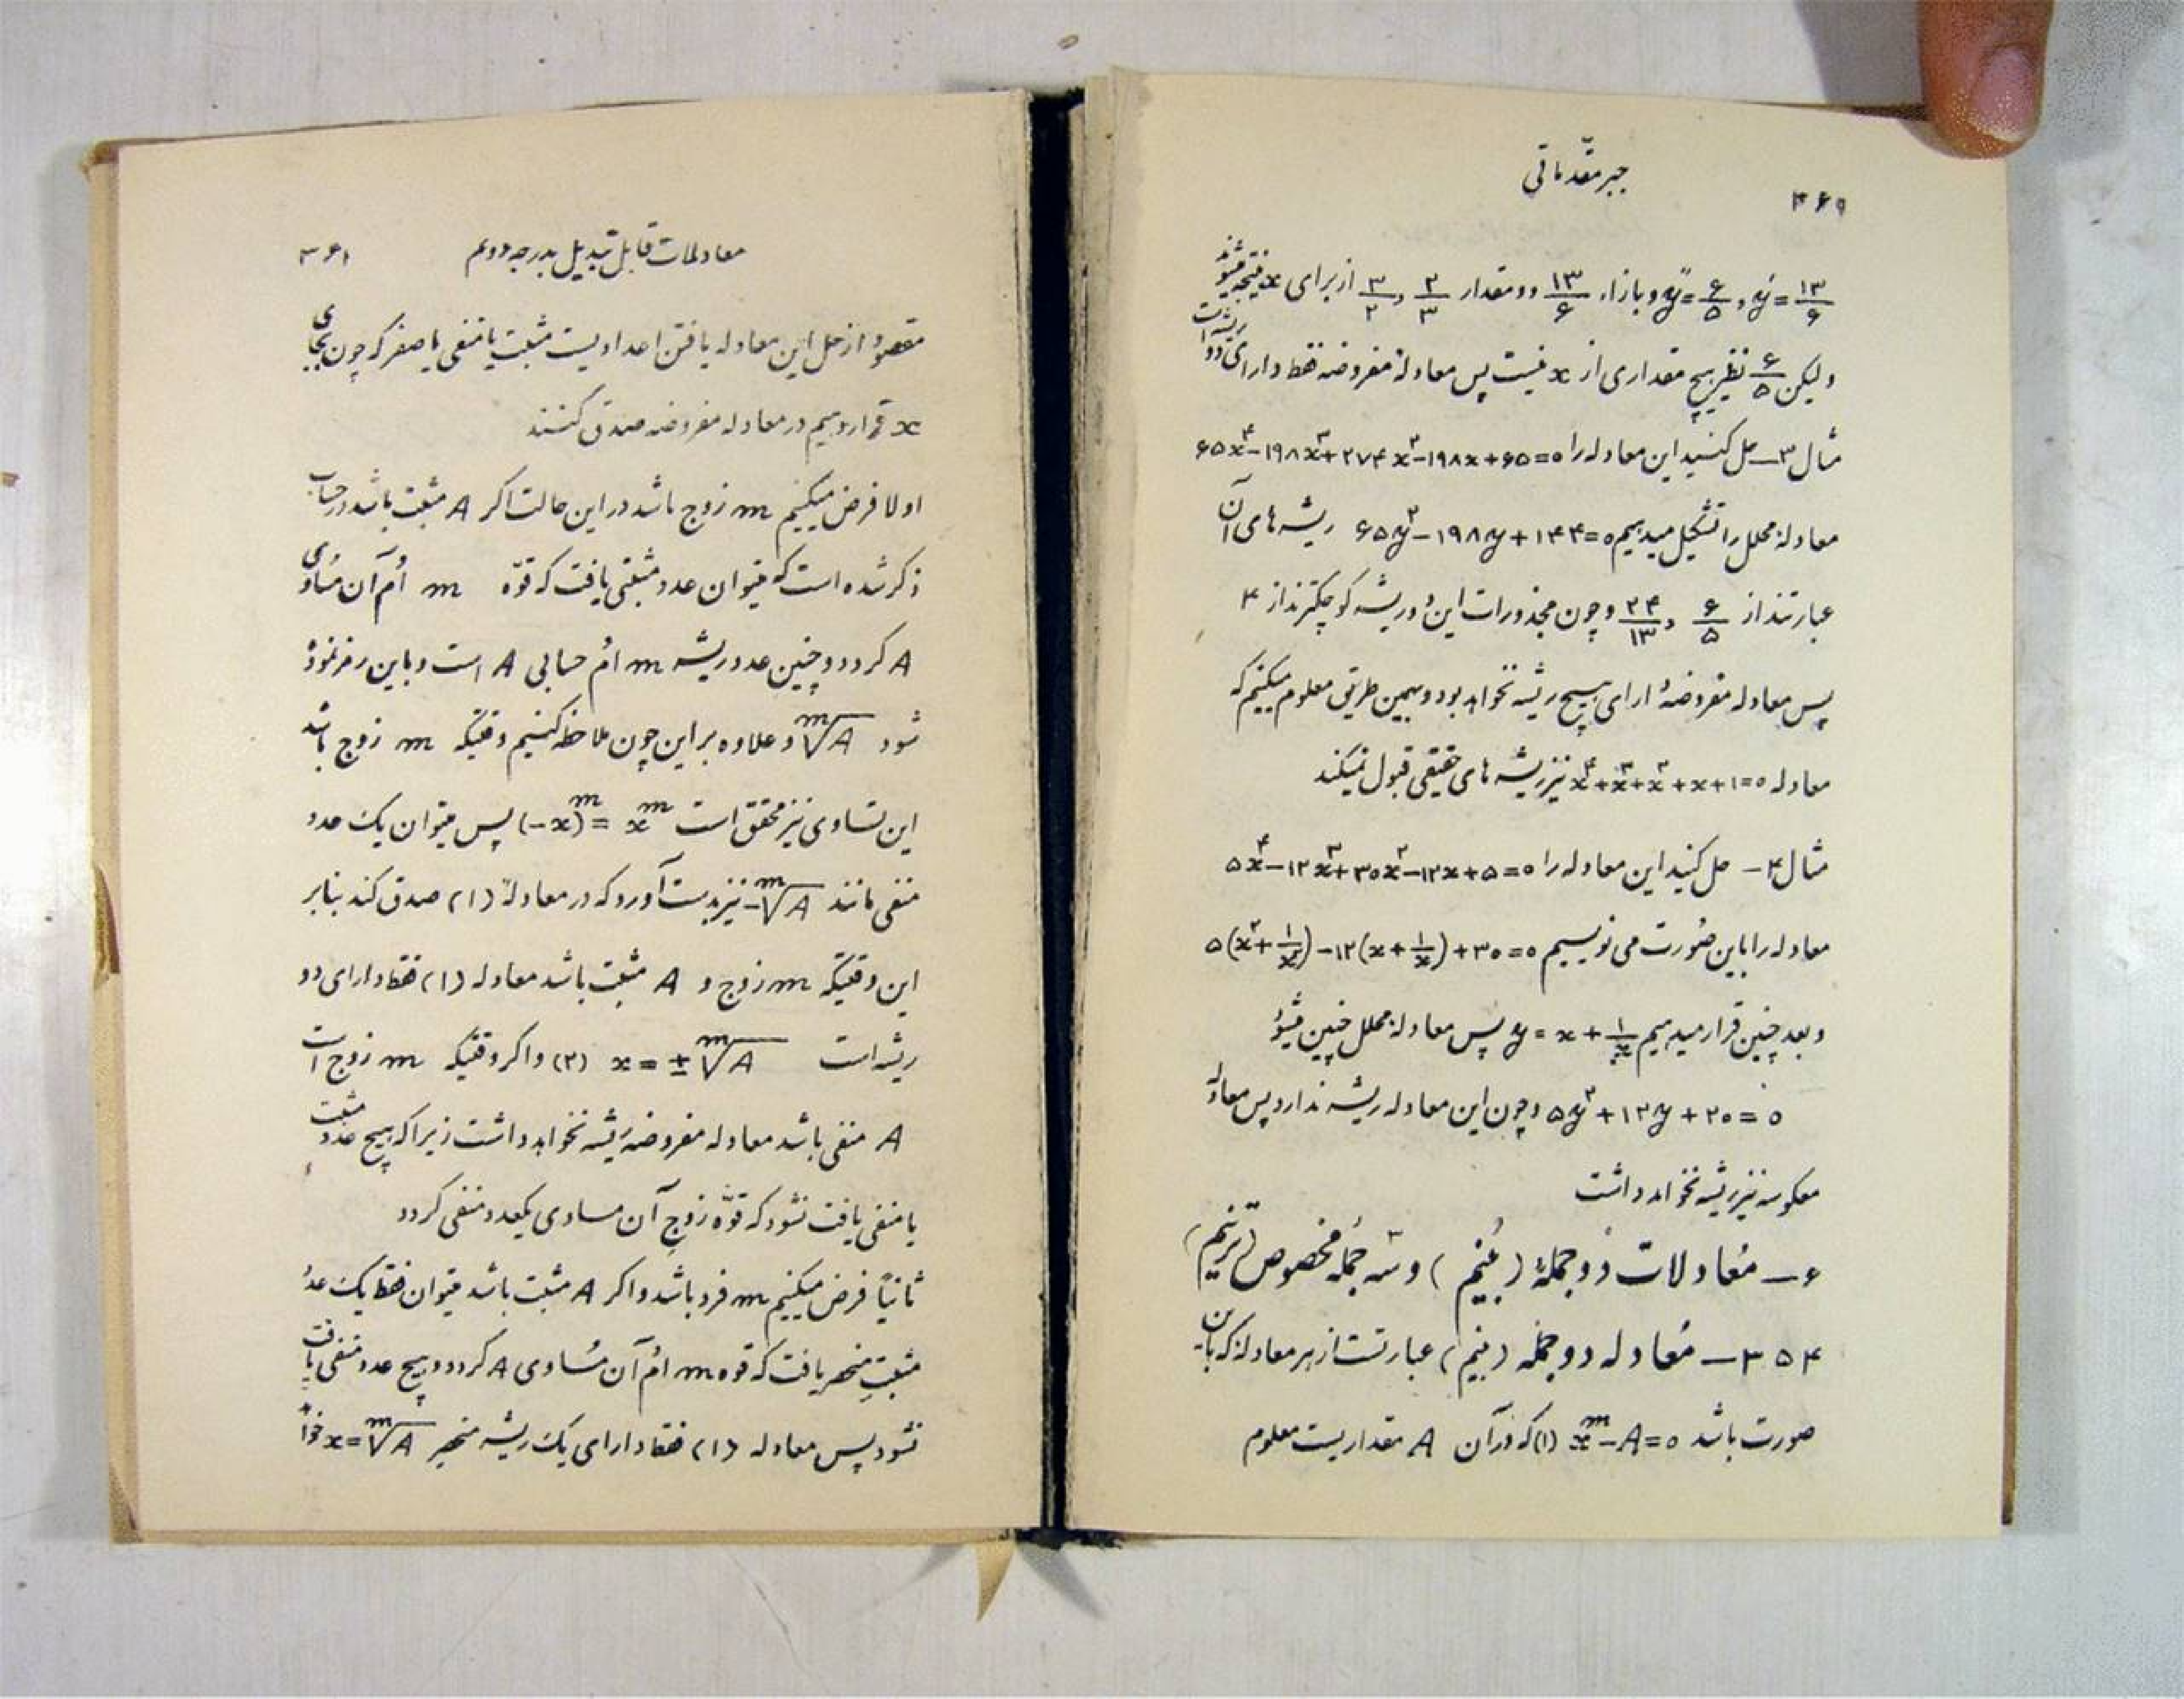 جبر مقدّماتی
۳۶۹
y′ = ۱۳/۶ و y″ = ۶/۵ و بازاء ۱۳/۶ دو مقدار ۲/۳ و ۳/۲ از برای x نتیجه میشوند
ولیکن ۶/۵ نظیر هیچ مقداری از x نیست پس معادلهٔ مفروضه فقط دارای دو ریشه است
مثال ۳ــ حل کنید این معادله را ۶۵x⁴−۱۹۸x³+۲۷۴x²−۱۹۸x+۶۵=۰
معادلهٔ محلل را تشکیل میدهیم ۶۵y²−۱۹۸y+۱۴۴=۰ ریشه‌های آن
عبارتند از ۶/۵ و ۲۴/۱۳ و چون مجذورات این دو ریشه کوچکترند از ۴
پس معادله مفروضه دارای هیچ ریشه نخواهد بود و بهمین طریق معلوم میکنیم که
معادله x⁴+x³+x²+x+۱=۰ نیز ریشه‌های حقیقی قبول نمیکند
مثال ۴ــ حل کنید این معادله را ۵x⁴−۱۲x³+۳۰x²−۱۲x+۵=۰
معادله را باین صورت می نویسیم ۵(x²+۱/x²)−۱۲(x+۱/x)+۳۰=۰
و بعد چنین قرار میدهیم y = x + ۱/x پس معادلهٔ محلل چنین میشود
۵y²+۱۲y+۲۰=۰ و چون این معادله ریشه ندارد پس معادله
معکوسه نیز ریشه نخواهد داشت
۶ــ مُعادلات دُوجملهٔ (بُنیم) و سه جُملهٔ مخصوص (ترنیم)
۳۵۴ــ مُعادله دوجمله (بنیم) عبارتست از هر معادلهٔ که باین
صورت باشد xᵐ−A=۰ (۱) که در آن A مقداریست معلوم
معادلات قابل تبدیل بدرجه دوم
۳۶۱
مقصود از حل این معادله یافتن اعدادیست مثبت یا منفی یا صفر که چون بجای
x قرار دهیم در معادله مفروضه صدق کنند
اولا فرض میکنیم m زوج باشد در این حالت اگر A مثبت باشد در حساب
ذکر شده است که میتوان عدد مثبتی یافت که قوّه m اُم آن مساوی
A گردد و چنین عدد ریشه m اُم حسابی A است و باین رمز نموده
شود ᵐ√A و علاوه بر این چون ملاحظه کنیم وقتیکه m زوج باشد
این تساوی نیز محقق است (−x)ᵐ = xᵐ پس میتوان یک عدد
منفی مانند −ᵐ√A نیز بدست آورد که در معادلهٔ (۱) صدق کند بنابر
این وقتیکه m زوج و A مثبت باشد معادله (۱) فقط دارای دو
ریشه است x = ± ᵐ√A (۲) و اگر وقتیکه m زوج است
A منفی باشد معادله مفروضه ریشه نخواهد داشت زیرا که هیچ عدد مثبت
یا منفی یافت نشود که قوّه زوجِ آن مساوی یکعدد منفی گردد
ثانیاً فرض میکنیم m فرد باشد و اگر A مثبت باشد میتوان فقط یک عدد
مثبتِ منحصر یافت که قوه m اُم آن مُساوی A گردد و هیچ عدد منفی یافت
نشود پس معادله (۱) فقط دارای یک ریشه منحصر x=ᵐ√A